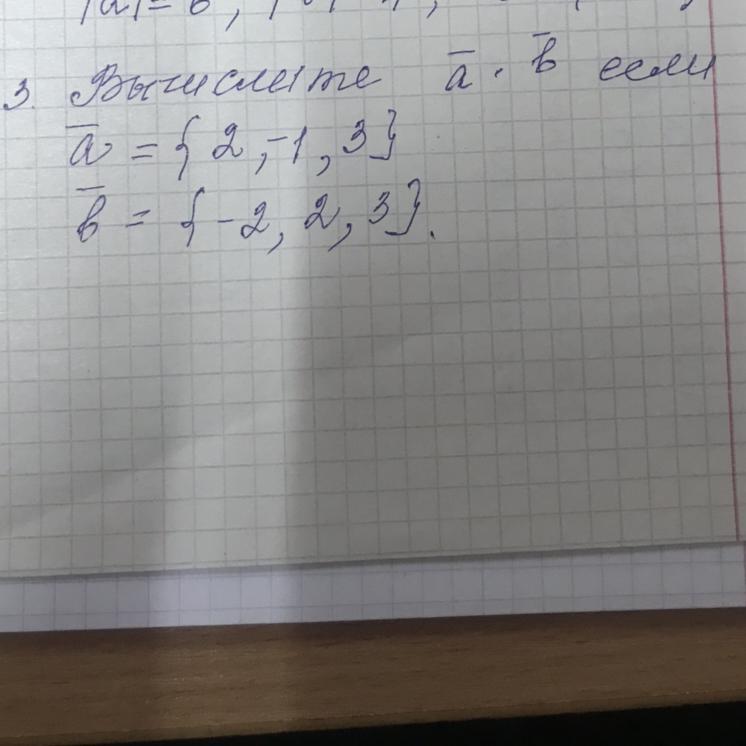 |a| = 6,
3. Вычислите a̅ · b̅ если
a̅ = { 2, -1, 3}
b̅ = {-2, 2, 3}.